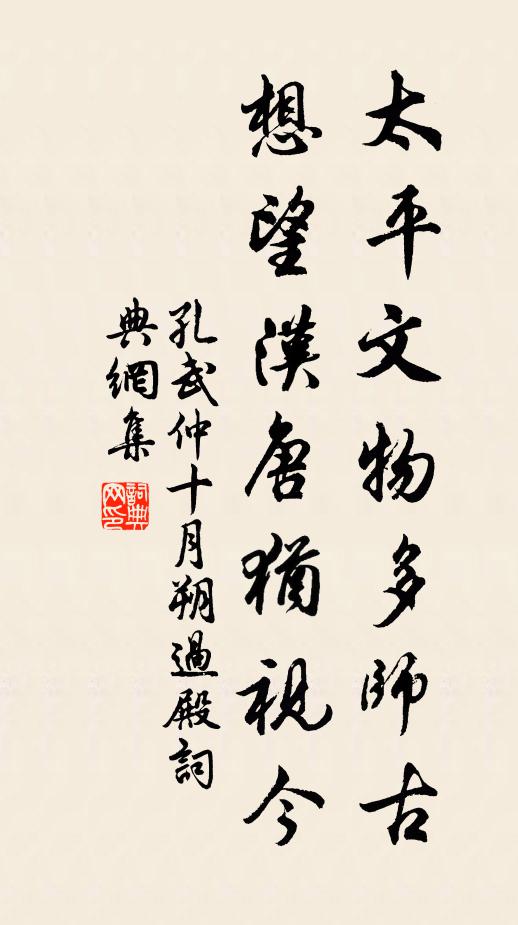 太平文物多師古
想望漢唐猶視今
孔武仲十月朔過殿詞
典網集
詞典網印